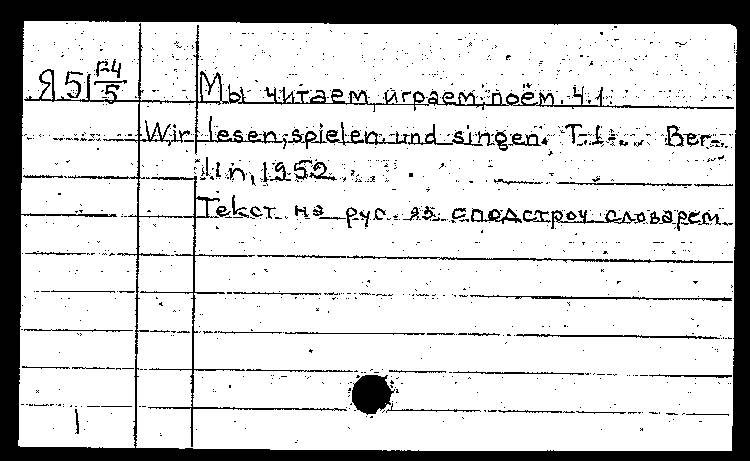 Я 51 Г-4/5 Мы читаем, играем, поём. Ч.1.
Wir lesen, spielen und singen. T.1-... Ber-
lin, 1952.
Текст на рус. яз. с подстроч. словарем